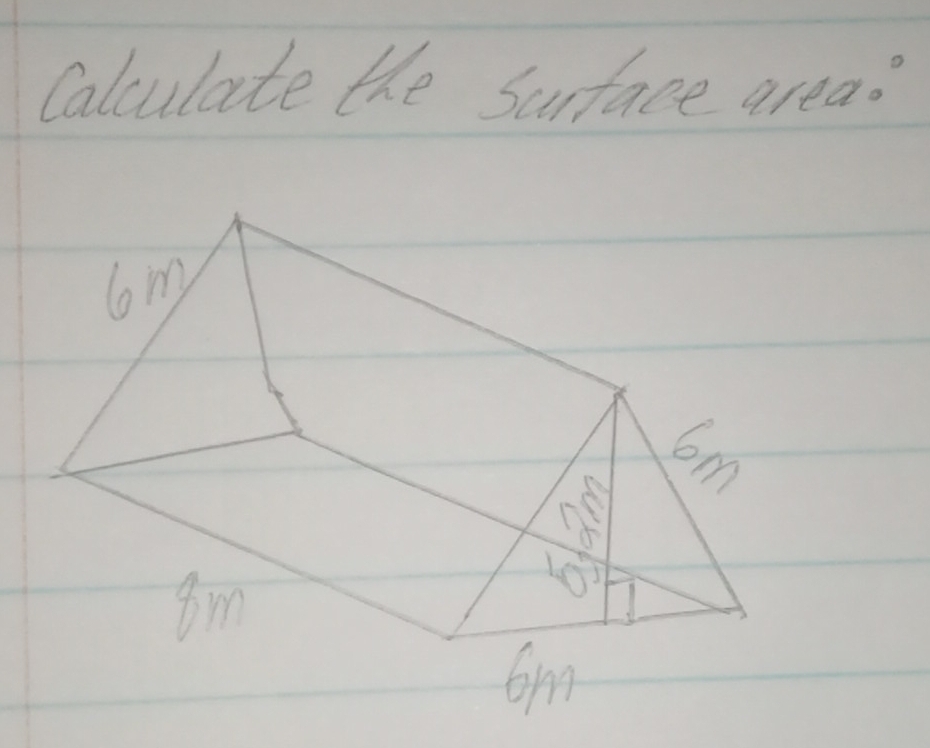 Calculate the surface area:
6m
6m
5,2m
8m
6m